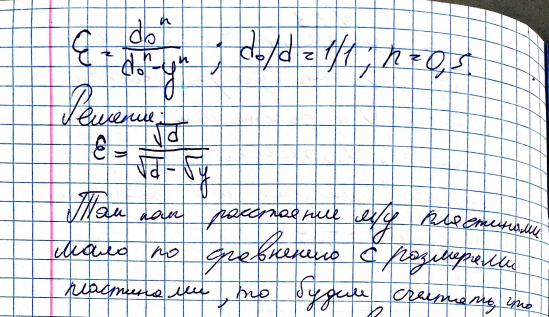 ε = d₀ⁿ / (d₀ⁿ - yⁿ) ; d₀/d = 1/1 ; n = 0,5.
Решение:
ε = √d / (√d - √y)
Так как расстояние м/у пластинами
мало по сравнению с размерами
пластинами, то будем считать, что